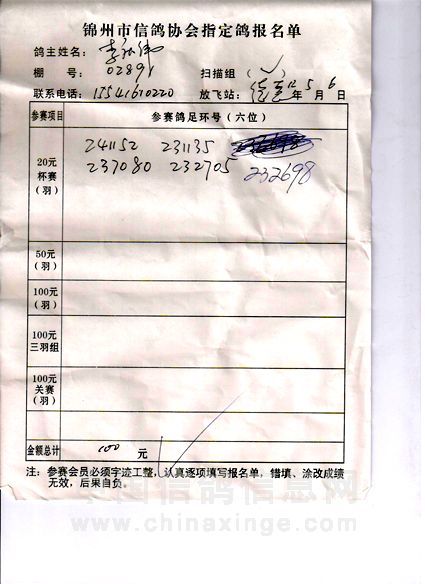 锦州市信鸽协会指定鸽报名单
鸽主姓名：
棚 号：02891 扫描组（√）
联系电话：13541610220 放飞站： 年5月6日
参赛项目 参赛鸽足环号（六位）
20元
杯赛
（羽）
241152 231135
237080 232705 232698
50元
（羽）
100元
（羽）
100元
三羽组
100元
关赛
（羽）
金额总计 100 元
注：参赛会员必须字迹工整，认真逐项填写报名单，错填、涂改成绩
无效，后果自负。
中国信鸽信息网
www.chinaxinge.com